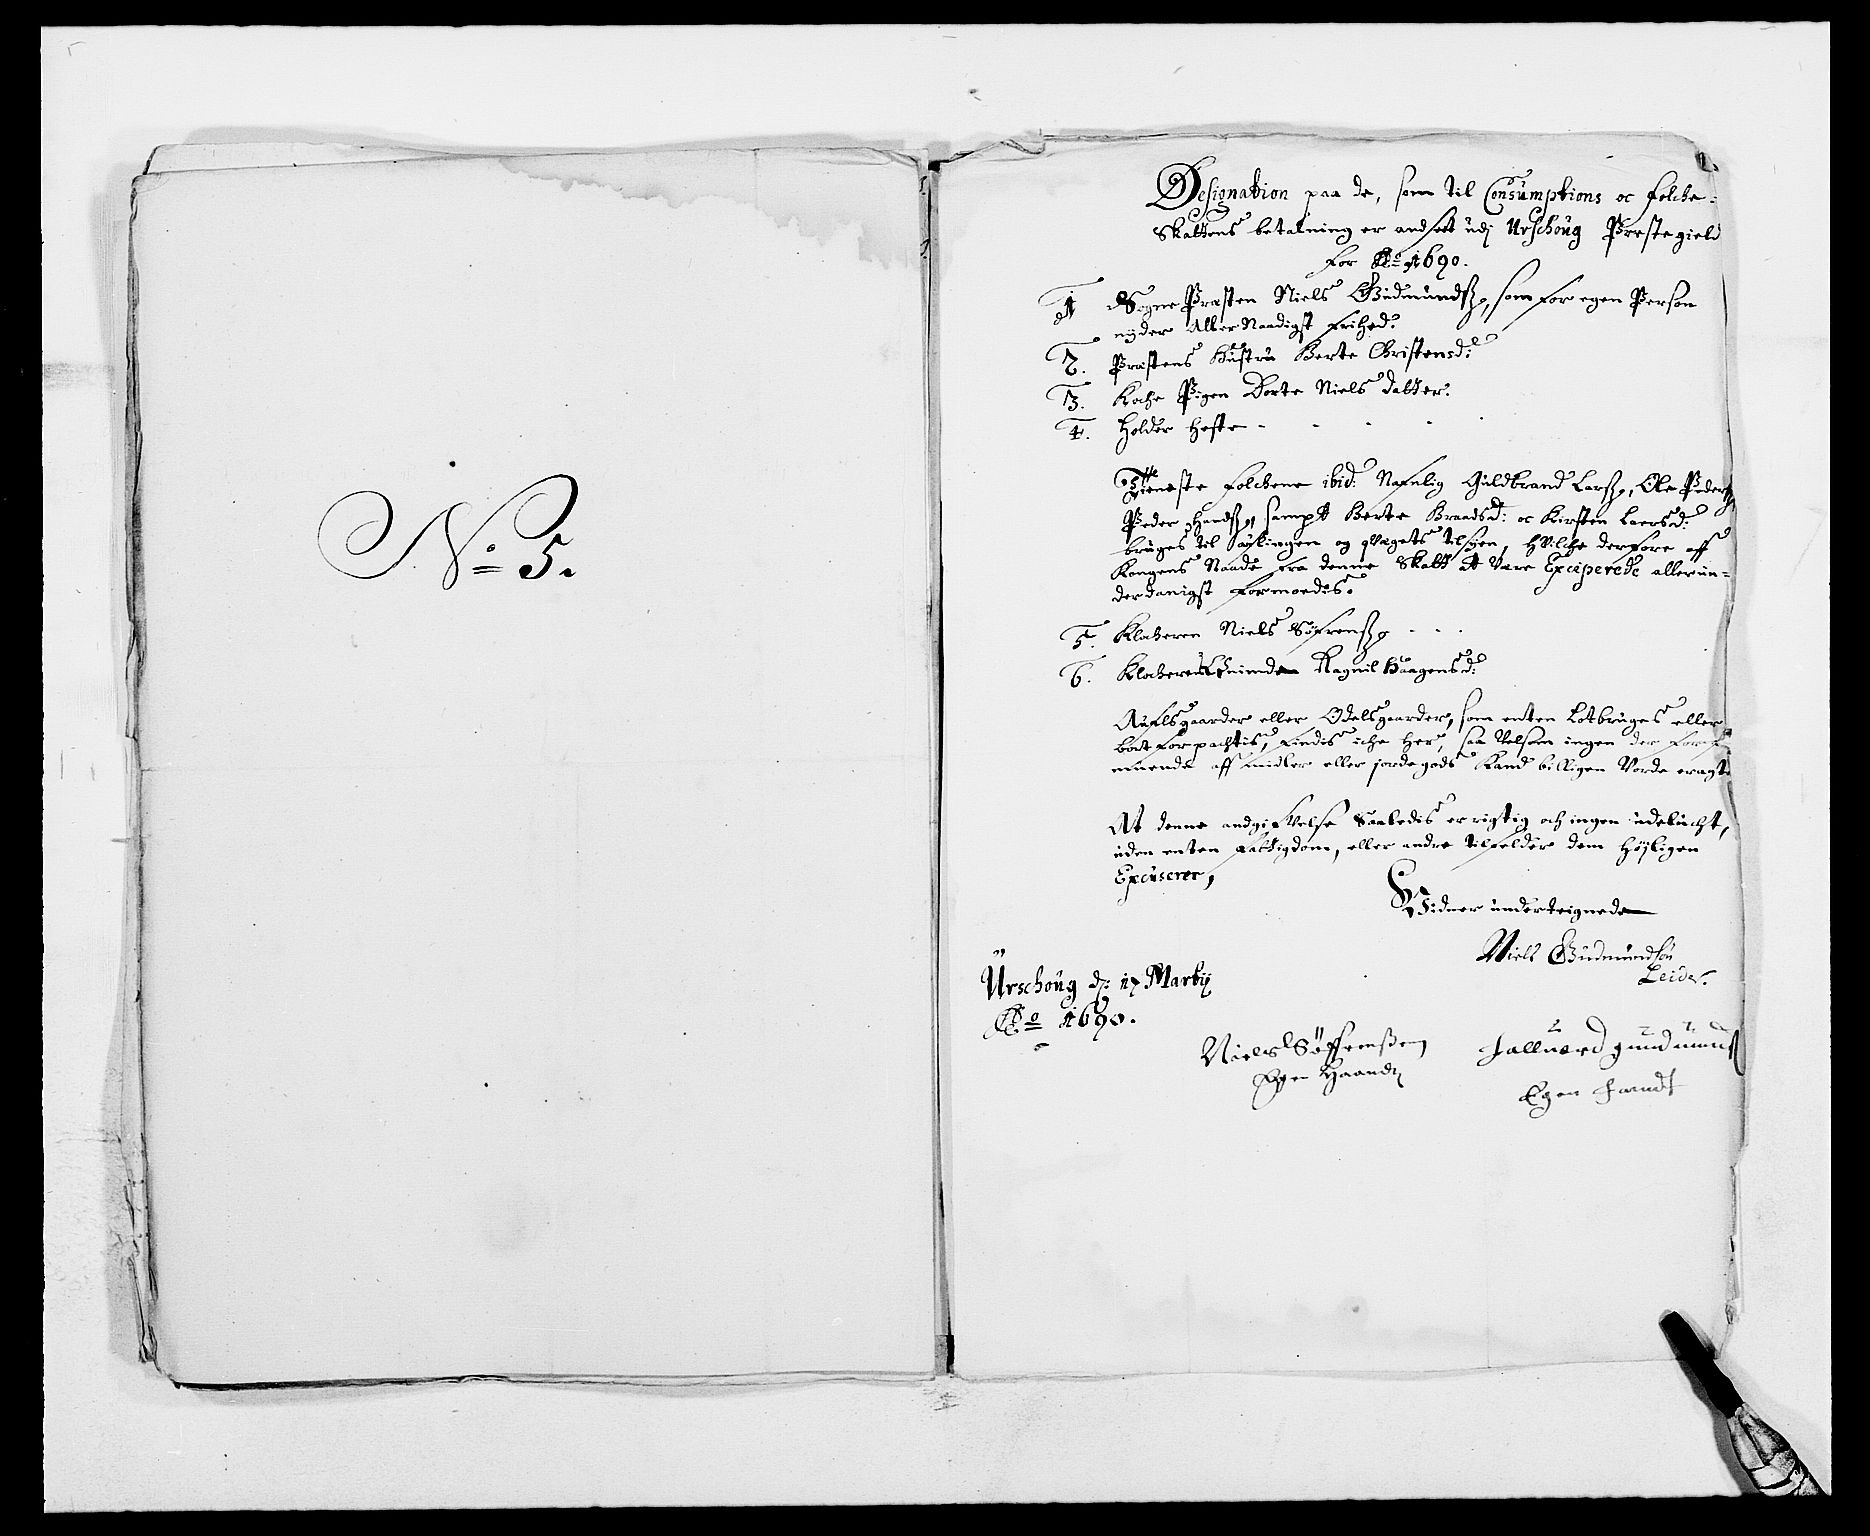 No 5.
Designation paa de, som til Consumptions oc Folche-
Skattens betalning er andsett udj Urschoug Præstegield
for Ao 1690.
1 SognePræsten Niels Gudmundß., som for egen Person
nyder AllerNaadigst frihed.
2. Præstens Hustru Berte Christensd:
3. Koche Pigen Dorte Niels datter.
4. Holder heste - - - -
Tieneste Folchene ibid: Nafnlig Guldbrand Larß., Ole Peders
Peder Handß., sampt Berte Braadsd: oc Kirsten Laersd:
bruges til aflingen og qvægets tilsyen, hvilche derfore aff
Kongens Naade fra denne Skatt at være Exciperede allerun-
derdanigst formoedis.
5. Klocheren Niels Søfrenß. - - -
6. Klocherens Qvinde Ragnil Haagensd:
Auflsgaarder eller Odelsgaarder, som enten Lotbruges eller
bort forpachtis, findis iche her, saa velsom ingen der for
muende aff midler eller jordegods kand billigen vorde eragt
At denne andgifvelse saaledis er rigtig och ingen udelucht,
uden enten fattigdom, eller andre tilfelder dem høyligen
Excuserer,
Vidner underteignede
Niels Gudmundsøn
Leider.
Urschoug d: 17 Martij
Ao 1690.
Niels Søffrenßen
Egen Haand
Halluerd gundmunds
Egen handt